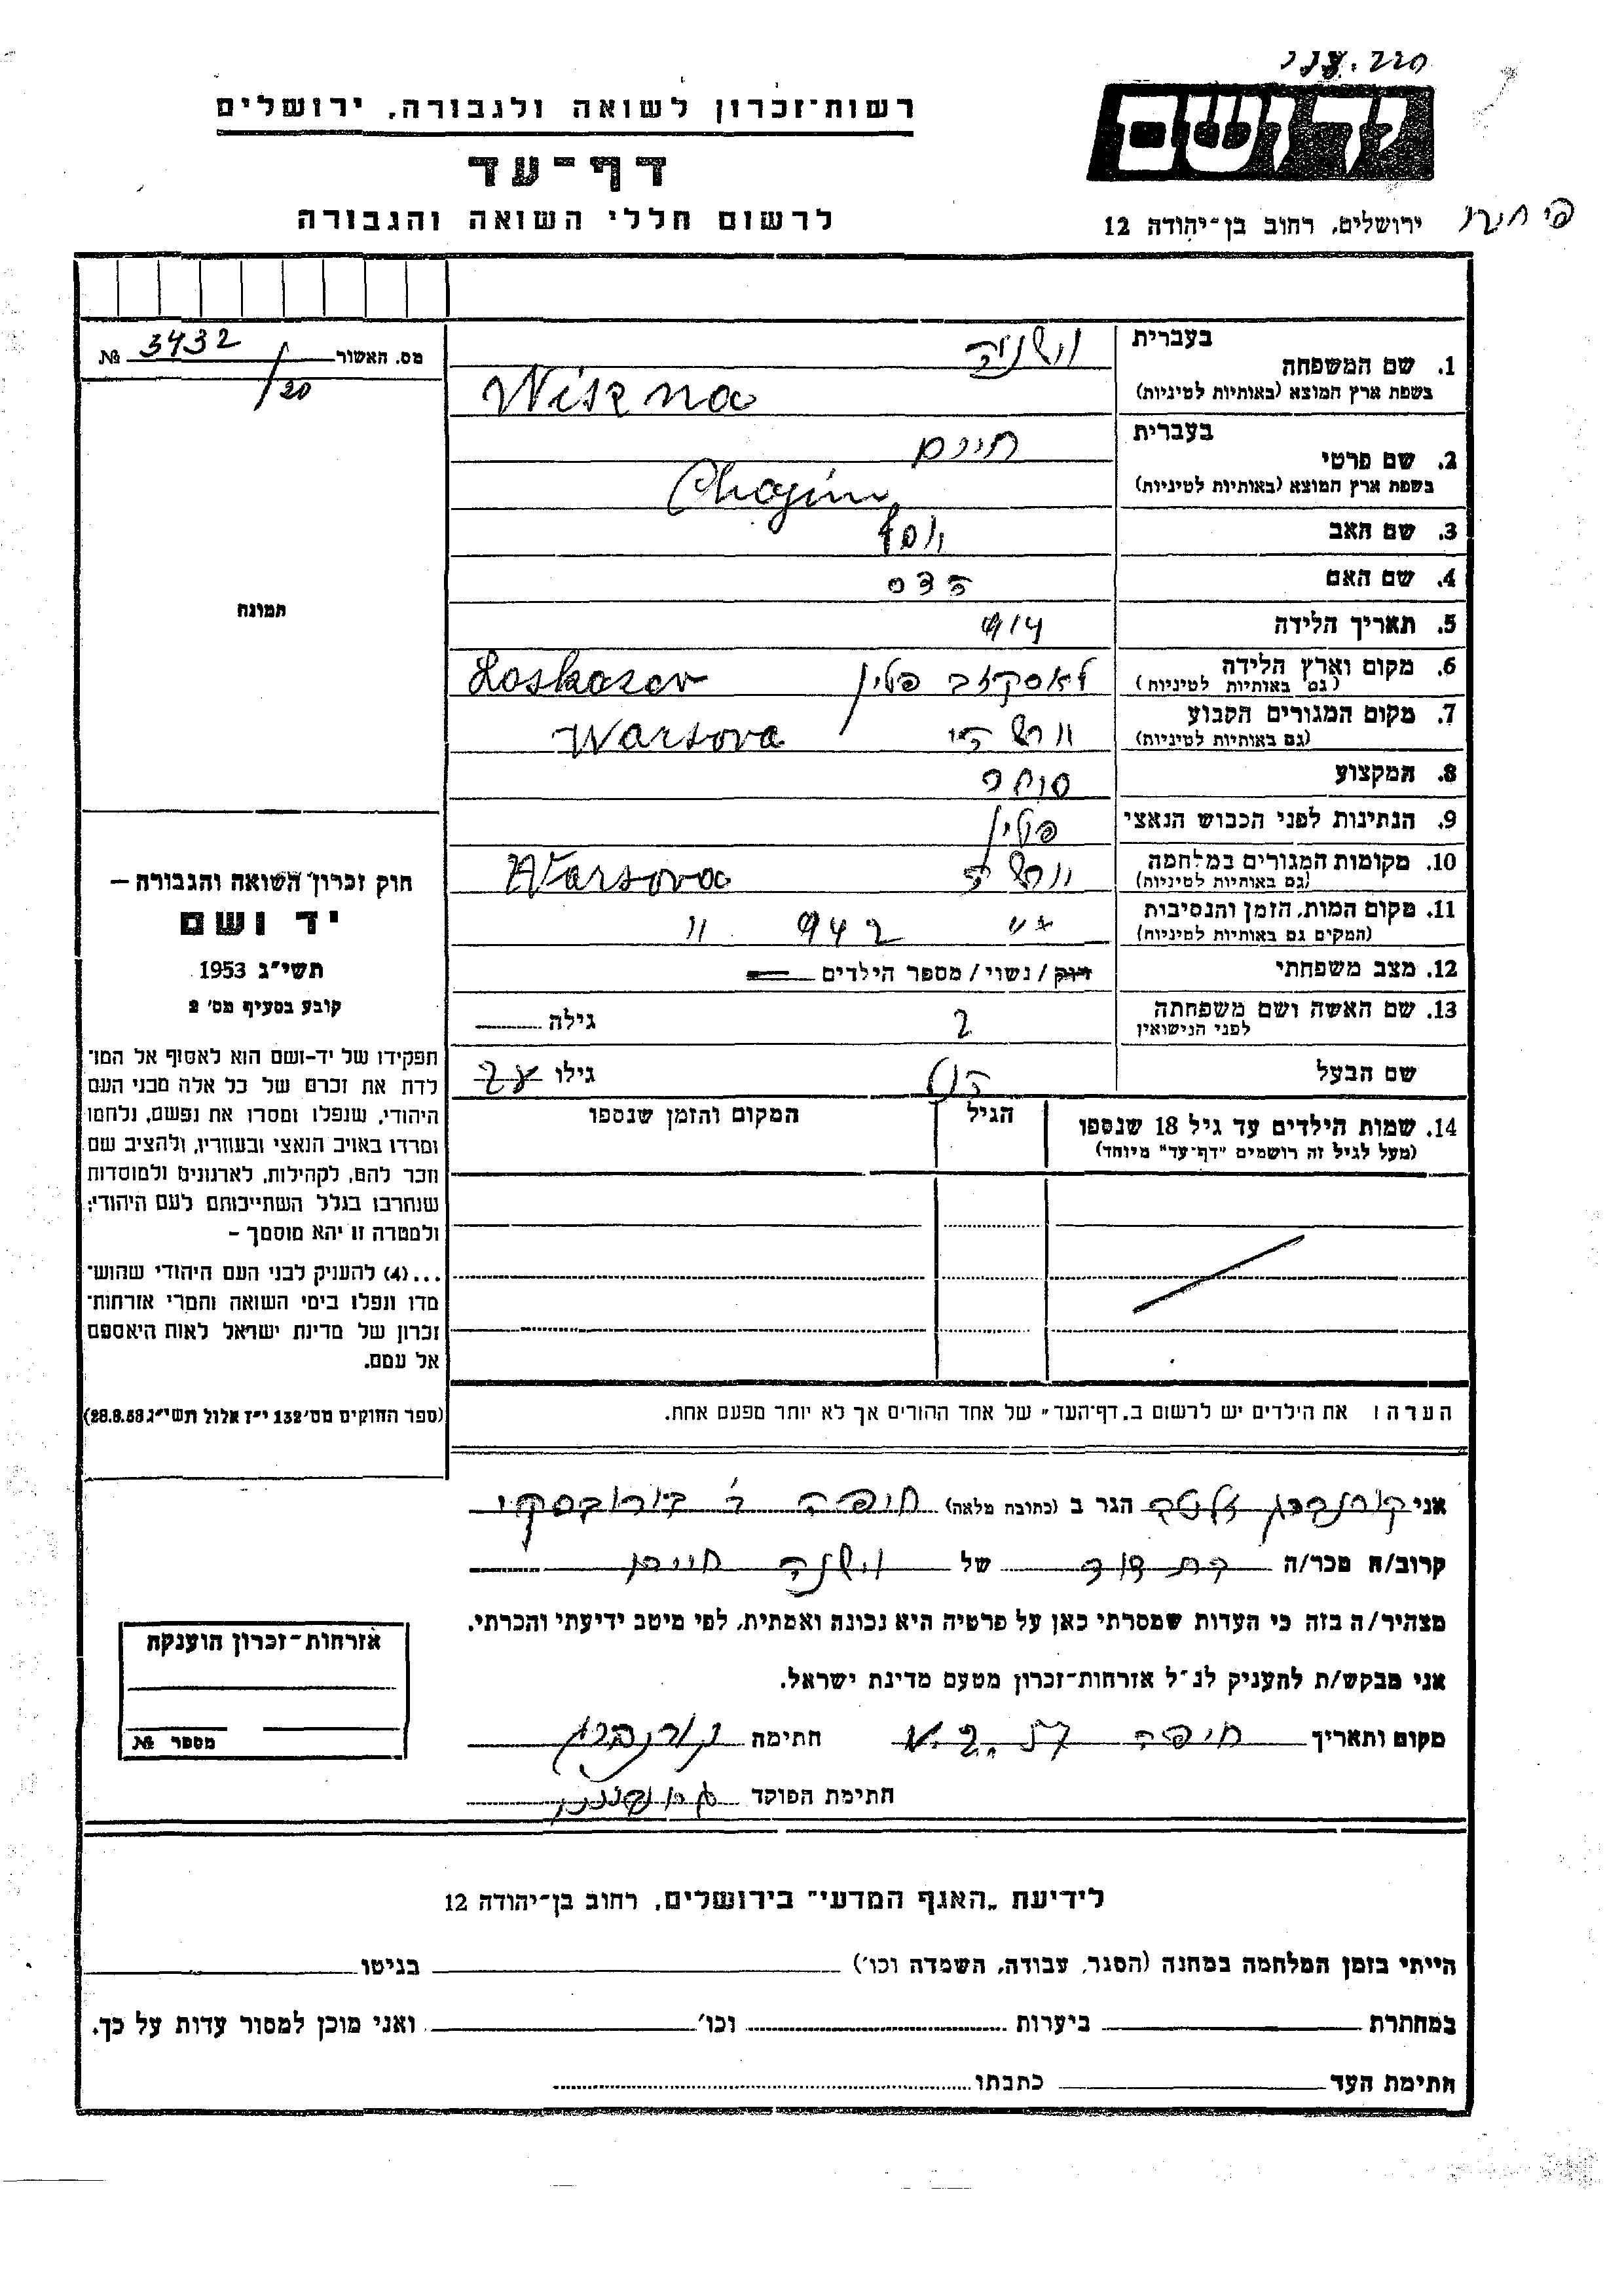 רשות־זכרון לשואה ולגבורה, ירושלים
דף־עד
לרשום חללי השואה והגבורה
יד ושם
ירושלים, רחוב בן־יהודה 12
מס. האשור 3432 №
/20
תמונה
1. שם המשפחה
בעברית וישנה
בשפת ארץ המוצא (באותיות לטיניות) Wiszna
2. שם פרטי
בעברית חיים
בשפת ארץ המוצא (באותיות לטיניות) Chagim
3. שם האב יוסף
4. שם האם הדס
5. תאריך הלידה 914
6. מקום וארץ הלידה לאסקזב פולין Loskazov
(גם באותיות לטיניות)
7. מקום המגורים הקבוע Warsova
(גם באותיות לטיניות)
8. המקצוע סוחר
9. הנתינות לפני הכבוש הנאצי פולין
10. מקומות המגורים במלחמה ורשה Warsova
(גם באותיות לטיניות)
11. מקום המות, הזמן והנסיבות 942 "
(המקום גם באותיות לטיניות)
12. מצב משפחתי רווק / נשוי / מספר הילדים
13. שם האשה ושם משפחתה גילה
לפני הנישואין
שם הבעל גילו
14. שמות הילדים עד גיל 18 שנספו הגיל המקום והזמן שנספו
(מעל לגיל זה רושמים "דף־עד" מיוחד)
חוק זכרון השואה והגבורה –
יד ושם
תשי"ג 1953
קובע בסעיף מס' 2
תפקידו של יד-ושם הוא לאסוף אל המו־
לדת את זכרם של כל אלה מבני העם
היהודי, שנפלו ומסרו את נפשם, נלחמו
ומרדו באויב הנאצי ובעוזריו, ולהציב שם
וזכר להם, לקהילות, לארגונים ולמוסדות
שנחרבו בגלל השתייכותם לעם היהודי;
ולמטרה זו יהא מוסמך –
...(4) להעניק לבני העם היהודי שהוש־
מדו ונפלו בימי השואה והמרי אזרחות־
זכרון של מדינת ישראל לאות היאספם
אל עמם.
(ספר החוקים מס' 132 י"ז אלול תשי"ג 28.8.53)
הערה: את הילדים יש לרשום ב„דף־העד" של אחד ההורים אך לא יותר מפעם אחת.
אני זלטה הגר ב (כתובת מלאה) חיפה
קרוב/ה מכר/ה בת דוד של וישנה חיים
מצהיר/ה בזה כי העדות שמסרתי כאן על פרטיה היא נכונה ואמתית, לפי מיטב ידיעתי והכרתי.
אני מבקש/ת להעניק לנ"ל אזרחות־זכרון מטעם מדינת ישראל.
מקום ותאריך חיפה חתימה
חתימת הפוקד
אזרחות־זכרון הוענקה
מספר №
לידיעת „האגף המדעי" בירושלים, רחוב בן־יהודה 12
הייתי בזמן המלחמה במחנה (הסגר, עבודה, השמדה וכו') בגיטו
במחתרת ביערות וכו' ואני מוכן למסור עדות על כך.
חתימת העד כתבתו